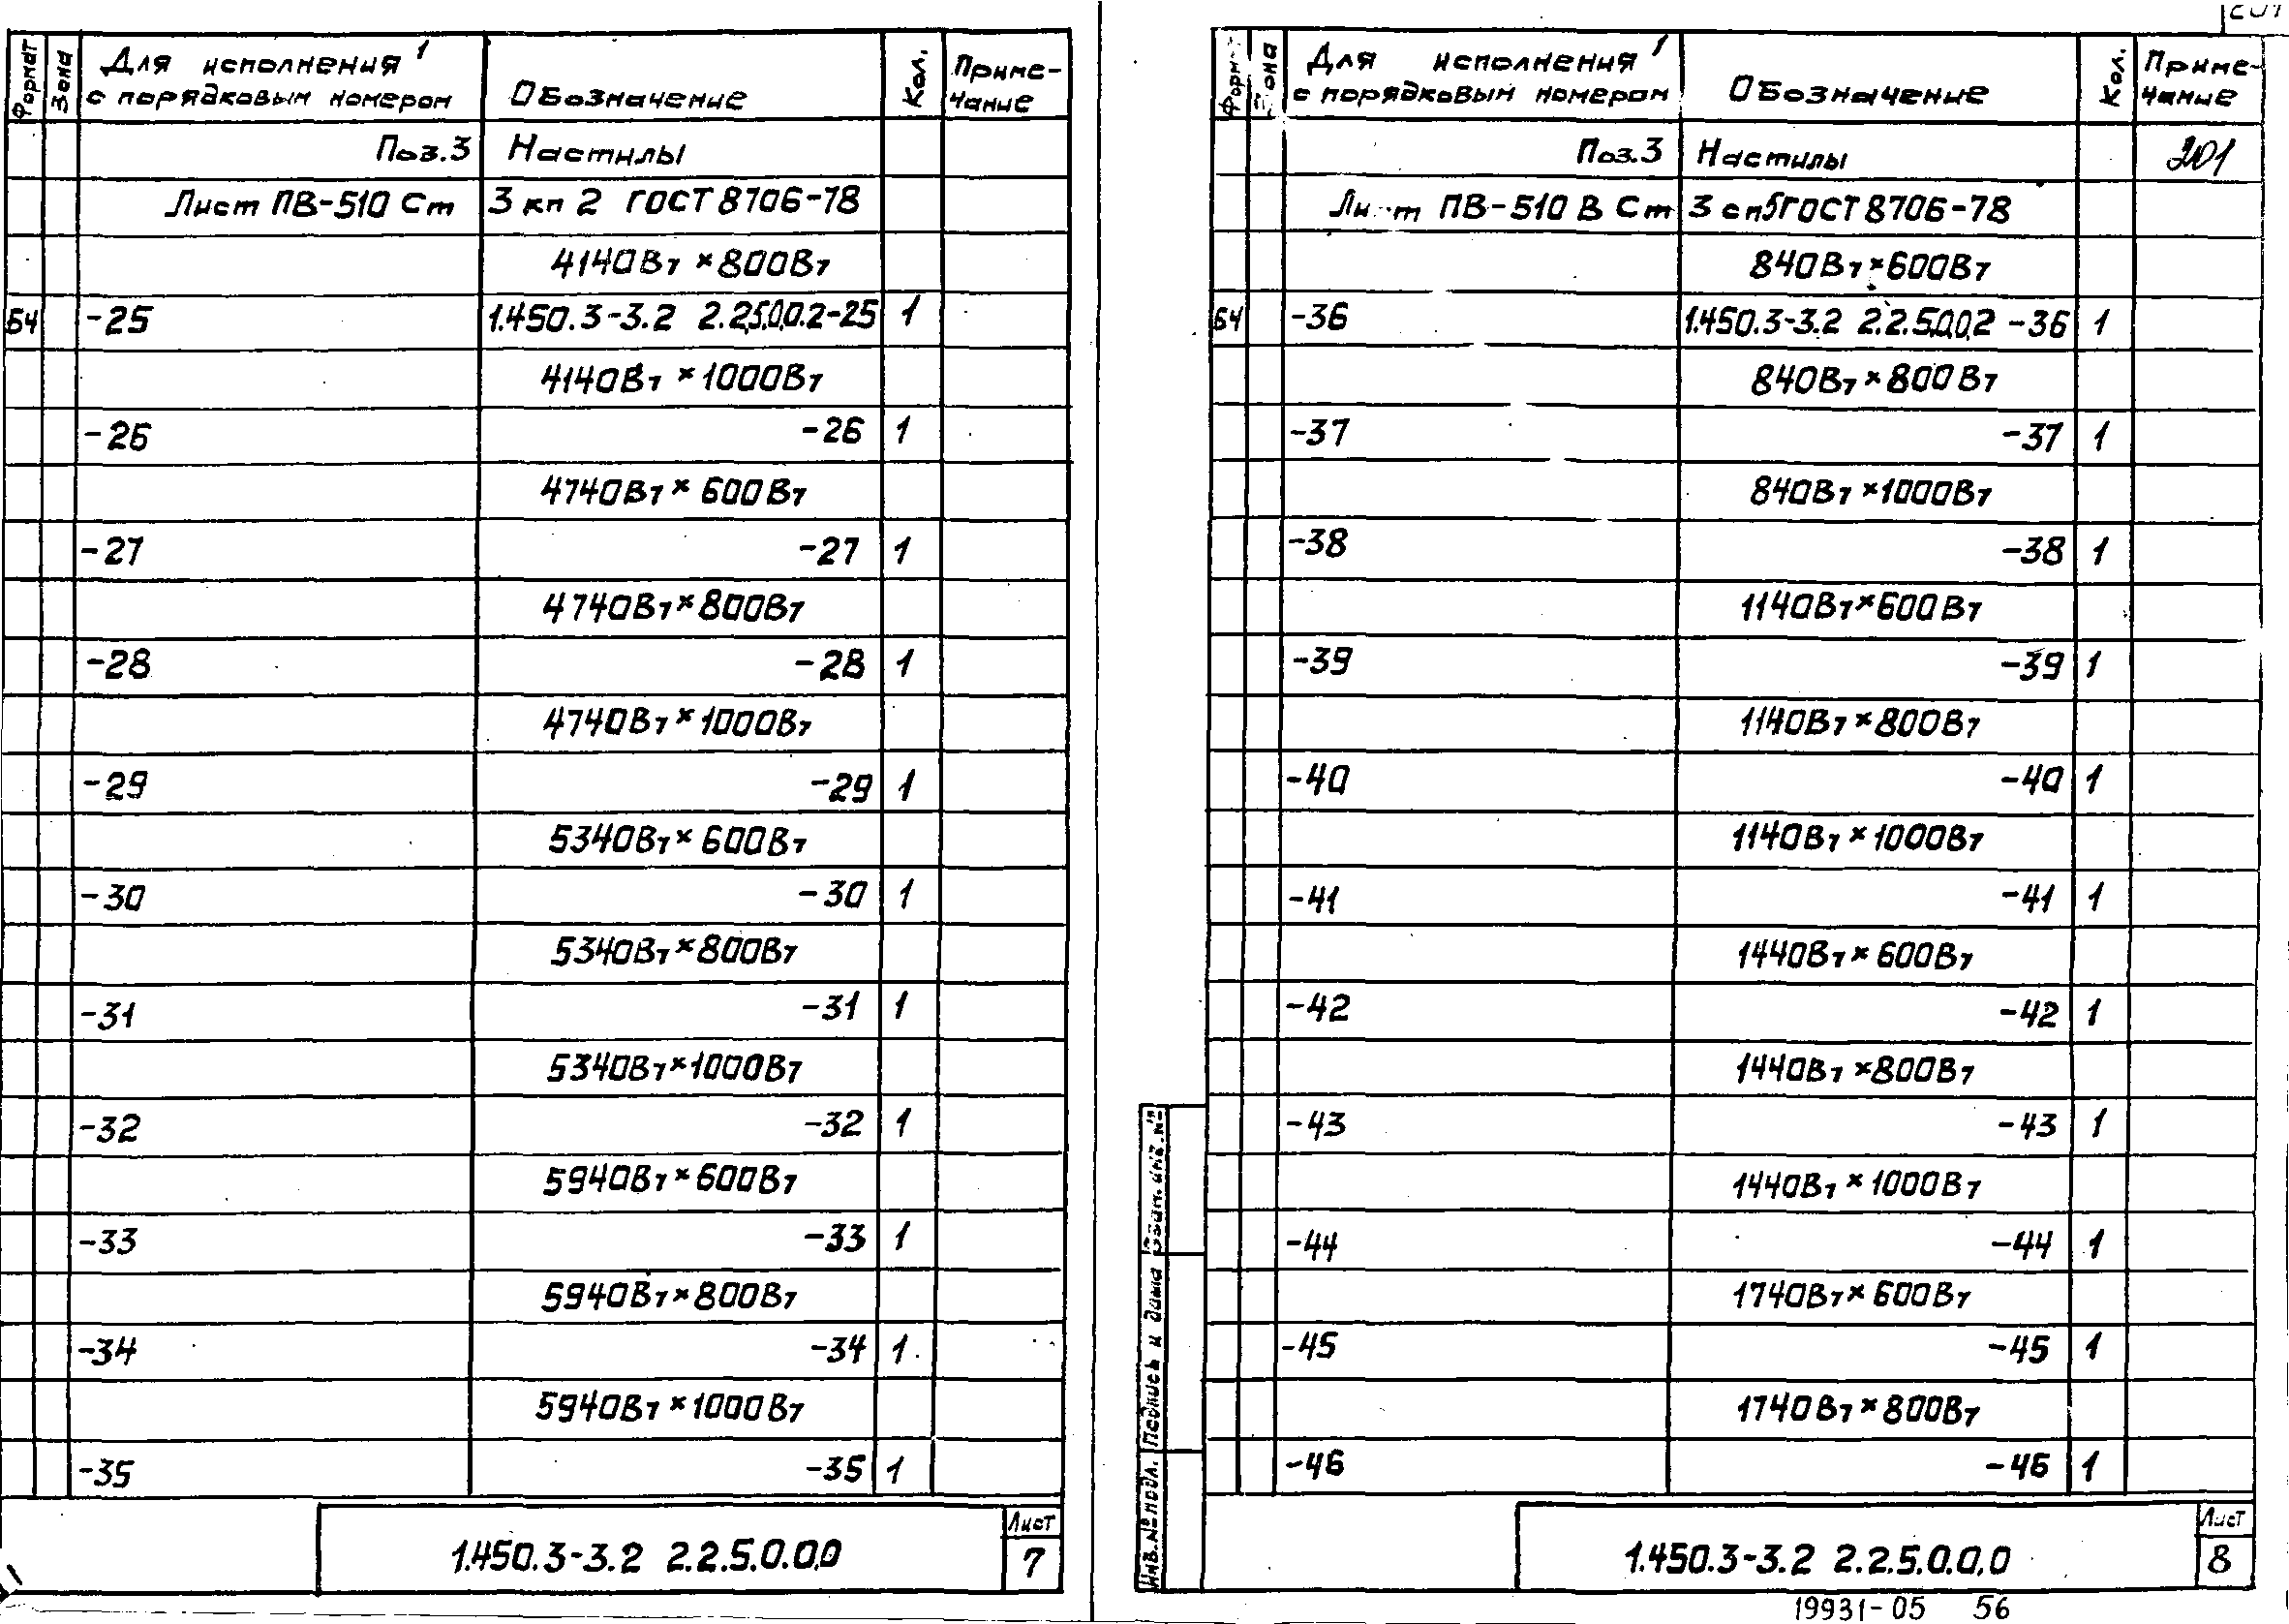 Формат
Зона
Для исполнения 1
с порядковым номером
Обозначение
Кол.
Приме-
чание
Поз.3 Настилы
Лист ПВ-510 Ст 3 кп 2 ГОСТ 8706-78
4140Вт × 800Вт
БЧ -25 1.450.3-3.2 2.2.5.0.0.2-25 1
4140Вт × 1000Вт
-26 -26 1
4740Вт × 600Вт
-27 -27 1
4740Вт × 800Вт
-28 -28 1
4740Вт × 1000Вт
-29 -29 1
5340Вт × 600Вт
-30 -30 1
5340Вт × 800Вт
-31 -31 1
5340Вт × 1000Вт
-32 -32 1
5940Вт × 600Вт
-33 -33 1
5940Вт × 800Вт
-34 -34 1
5940Вт × 1000Вт
-35 -35 1
1.450.3-3.2 2.2.5.0.0.0
Лист
7
Для исполнения 1
с порядковым номером
Обозначение
Кол.
Приме-
чание
Поз.3 Настилы 201
ПВ-510 В Ст 3 сп5 ГОСТ 8706-78
840Вт × 600Вт
БЧ -36 1.450.3-3.2 2.2.5.0.0.2 -36 1
840Вт × 800Вт
-37 -37 1
840Вт × 1000Вт
-38 -38 1
1140Вт × 600Вт
-39 -39 1
1140Вт × 800Вт
-40 -40 1
1140Вт × 1000Вт
-41 -41 1
1440Вт × 600Вт
-42 -42 1
1440Вт × 800Вт
-43 -43 1
1440Вт × 1000Вт
-44 -44 1
1740Вт × 600Вт
-45 -45 1
1740Вт × 800Вт
-46 -46 1
Инв. № подл.
Подпись и дата
Взам. инв. №
1.450.3-3.2 2.2.5.0.0.0
Лист
8
19931-05 56